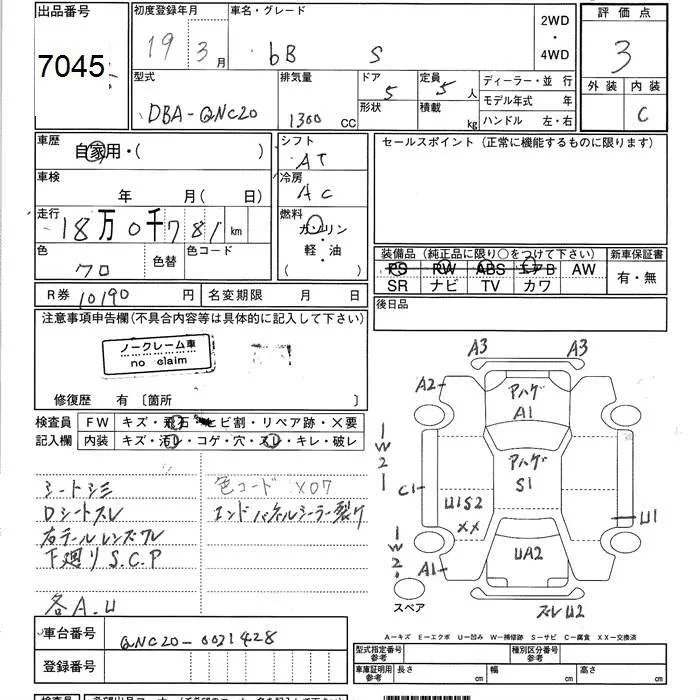 出品番号
7045
初度登録年月
19 3月
車名・グレード
bB S
2WD
・
4WD
評価点
3
外装 内装
C
型式
DBA-QNC20
排気量
1300 CC
ドア
5
形状
定員
5人
積載
kg
ディーラー・並行
モデル年式 年
ハンドル 左・右
車歴
自家用・( )
シフト
AT
セールスポイント(正常に機能するものに限ります)
車検
年 月(日)
冷房
AC
走行
18万0千781km
燃料
ガソリン
・
軽・油
( )
色
クロ
色替
色コード
装備品(純正品に限り○をつけて下さい)
PS PW ABS エアB AW
SR ナビ TV カワ
新車保証書
有・無
R券 10190円
名変期限 月 日
後日品
注意事項申告欄(不具合内容等は具体的に記入して下さい)
ノークレーム車
no claim
修復歴 有 〔箇所 〕
検査員
記入欄
FW キズ・飛石・ヒビ割・リペア跡・X要
内装 キズ・汚レ・コゲ・穴・スレ・キレ・破レ
シートシミ
Dシートスレ
右テールレンズワレ
下廻りS.C.P
各A.U
色コード X07
エンドパネルシーラー裂け
A3 A3
A2
アハゲ
A1
アハゲ
S1
C1
U1S2
XX
U1
UA2
A1
ズレU2
スペア
車台番号 QNC20-0031428
登録番号
A-キズ E-エクボ U-凹み W-補修跡 S-サビ C-腐食 XX-交換済
型式指定番号
参考
種別区分番号
参考
車庫証明用
参考
長さ cm
幅 cm
高さ cm